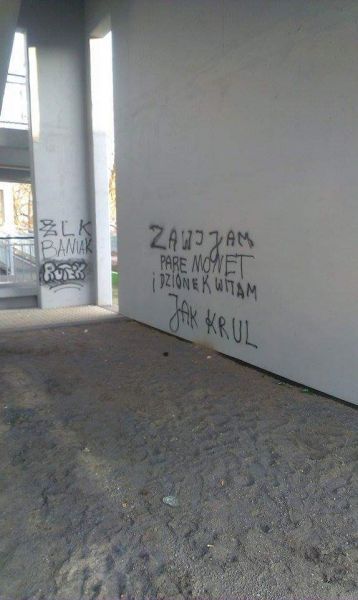 ŻLK
BANIAK
ZAWIJAM
PARE MONET
i DZIONEK WITAM
JAK KRUL